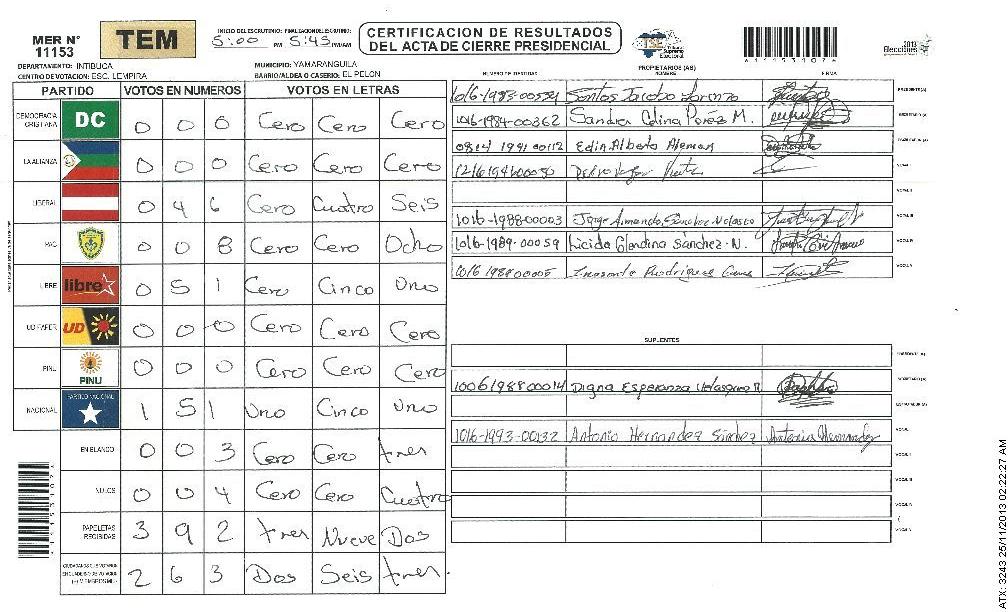 MER N° 11153
TEM
INICIO DEL ESCRUTINIO: 5:00 PM FINALIZACION DEL ESCRUTINIO: 5:45 PM/AM
CERTIFICACION DE RESULTADOS
DEL ACTA DE CIERRE PRESIDENCIAL
TSE Tribunal Supremo Electoral
Elecciones 2013
DEPARTAMENTO: INTIBUCA MUNICIPIO: YAMARANGUILA
CENTRO DE VOTACION: ESC. LEMPIRA BARRIO/ALDEA O CASERIO: EL PELON
PARTIDO VOTOS EN NUMEROS VOTOS EN LETRAS
DEMOCRACIA CRISTIANA DC 0 0 0 Cero Cero Cero
LA ALIANZA 0 0 0 Cero Cero Cero
LIBERAL 0 4 6 Cero Cuatro Seis
PAC 0 0 8 Cero Cero Ocho
LIBRE libre 0 5 1 Cero Cinco Uno
UD FAPER UD 0 0 0 Cero Cero Cero
PINU PINU 0 0 0 Cero Cero Cero
NACIONAL PARTIDO NACIONAL 1 5 1 Uno Cinco Uno
EN BLANCO 0 0 3 Cero Cero tres
NULOS 0 0 4 Cero Cero Cuatro
PAPELETAS RECIBIDAS 3 9 2 tres Nueve Dos
2 6 3 Dos Seis tres.
PROPIETARIOS (AS)
NUMERO DE IDENTIDAD NOMBRE FIRMA
1016-1983-00554 Santos Jacobo Lorenzo PRESIDENTE(A)
1016-1984-00362 Sandra Celina Perez M. SECRETARIO (A)
0814 1991 00112 Edin Alberto Aleman ESCRUTADOR (A)
VOCAL I
VOCAL II
1016-1988-00003 Jorge Armando Sánchez Nolasco VOCAL III
1016-1989-00059 Licida Glendina Sánchez N. VOCAL IV
1016 1988 00005 Rodriguez VOCAL V
SUPLENTES
PRESIDENTE (A)
1006 1988 00014 Digna Esperanza Velasquez R. SECRETARIO (A)
ESCRUTADOR (A)
1016-1993-00132 Antonio Hernandez Sánchez Antonio Hernandez VOCAL I
VOCAL II
VOCAL III
VOCAL IV
VOCAL V
ATX: 3243 25/11/2013 02:22:27 AM